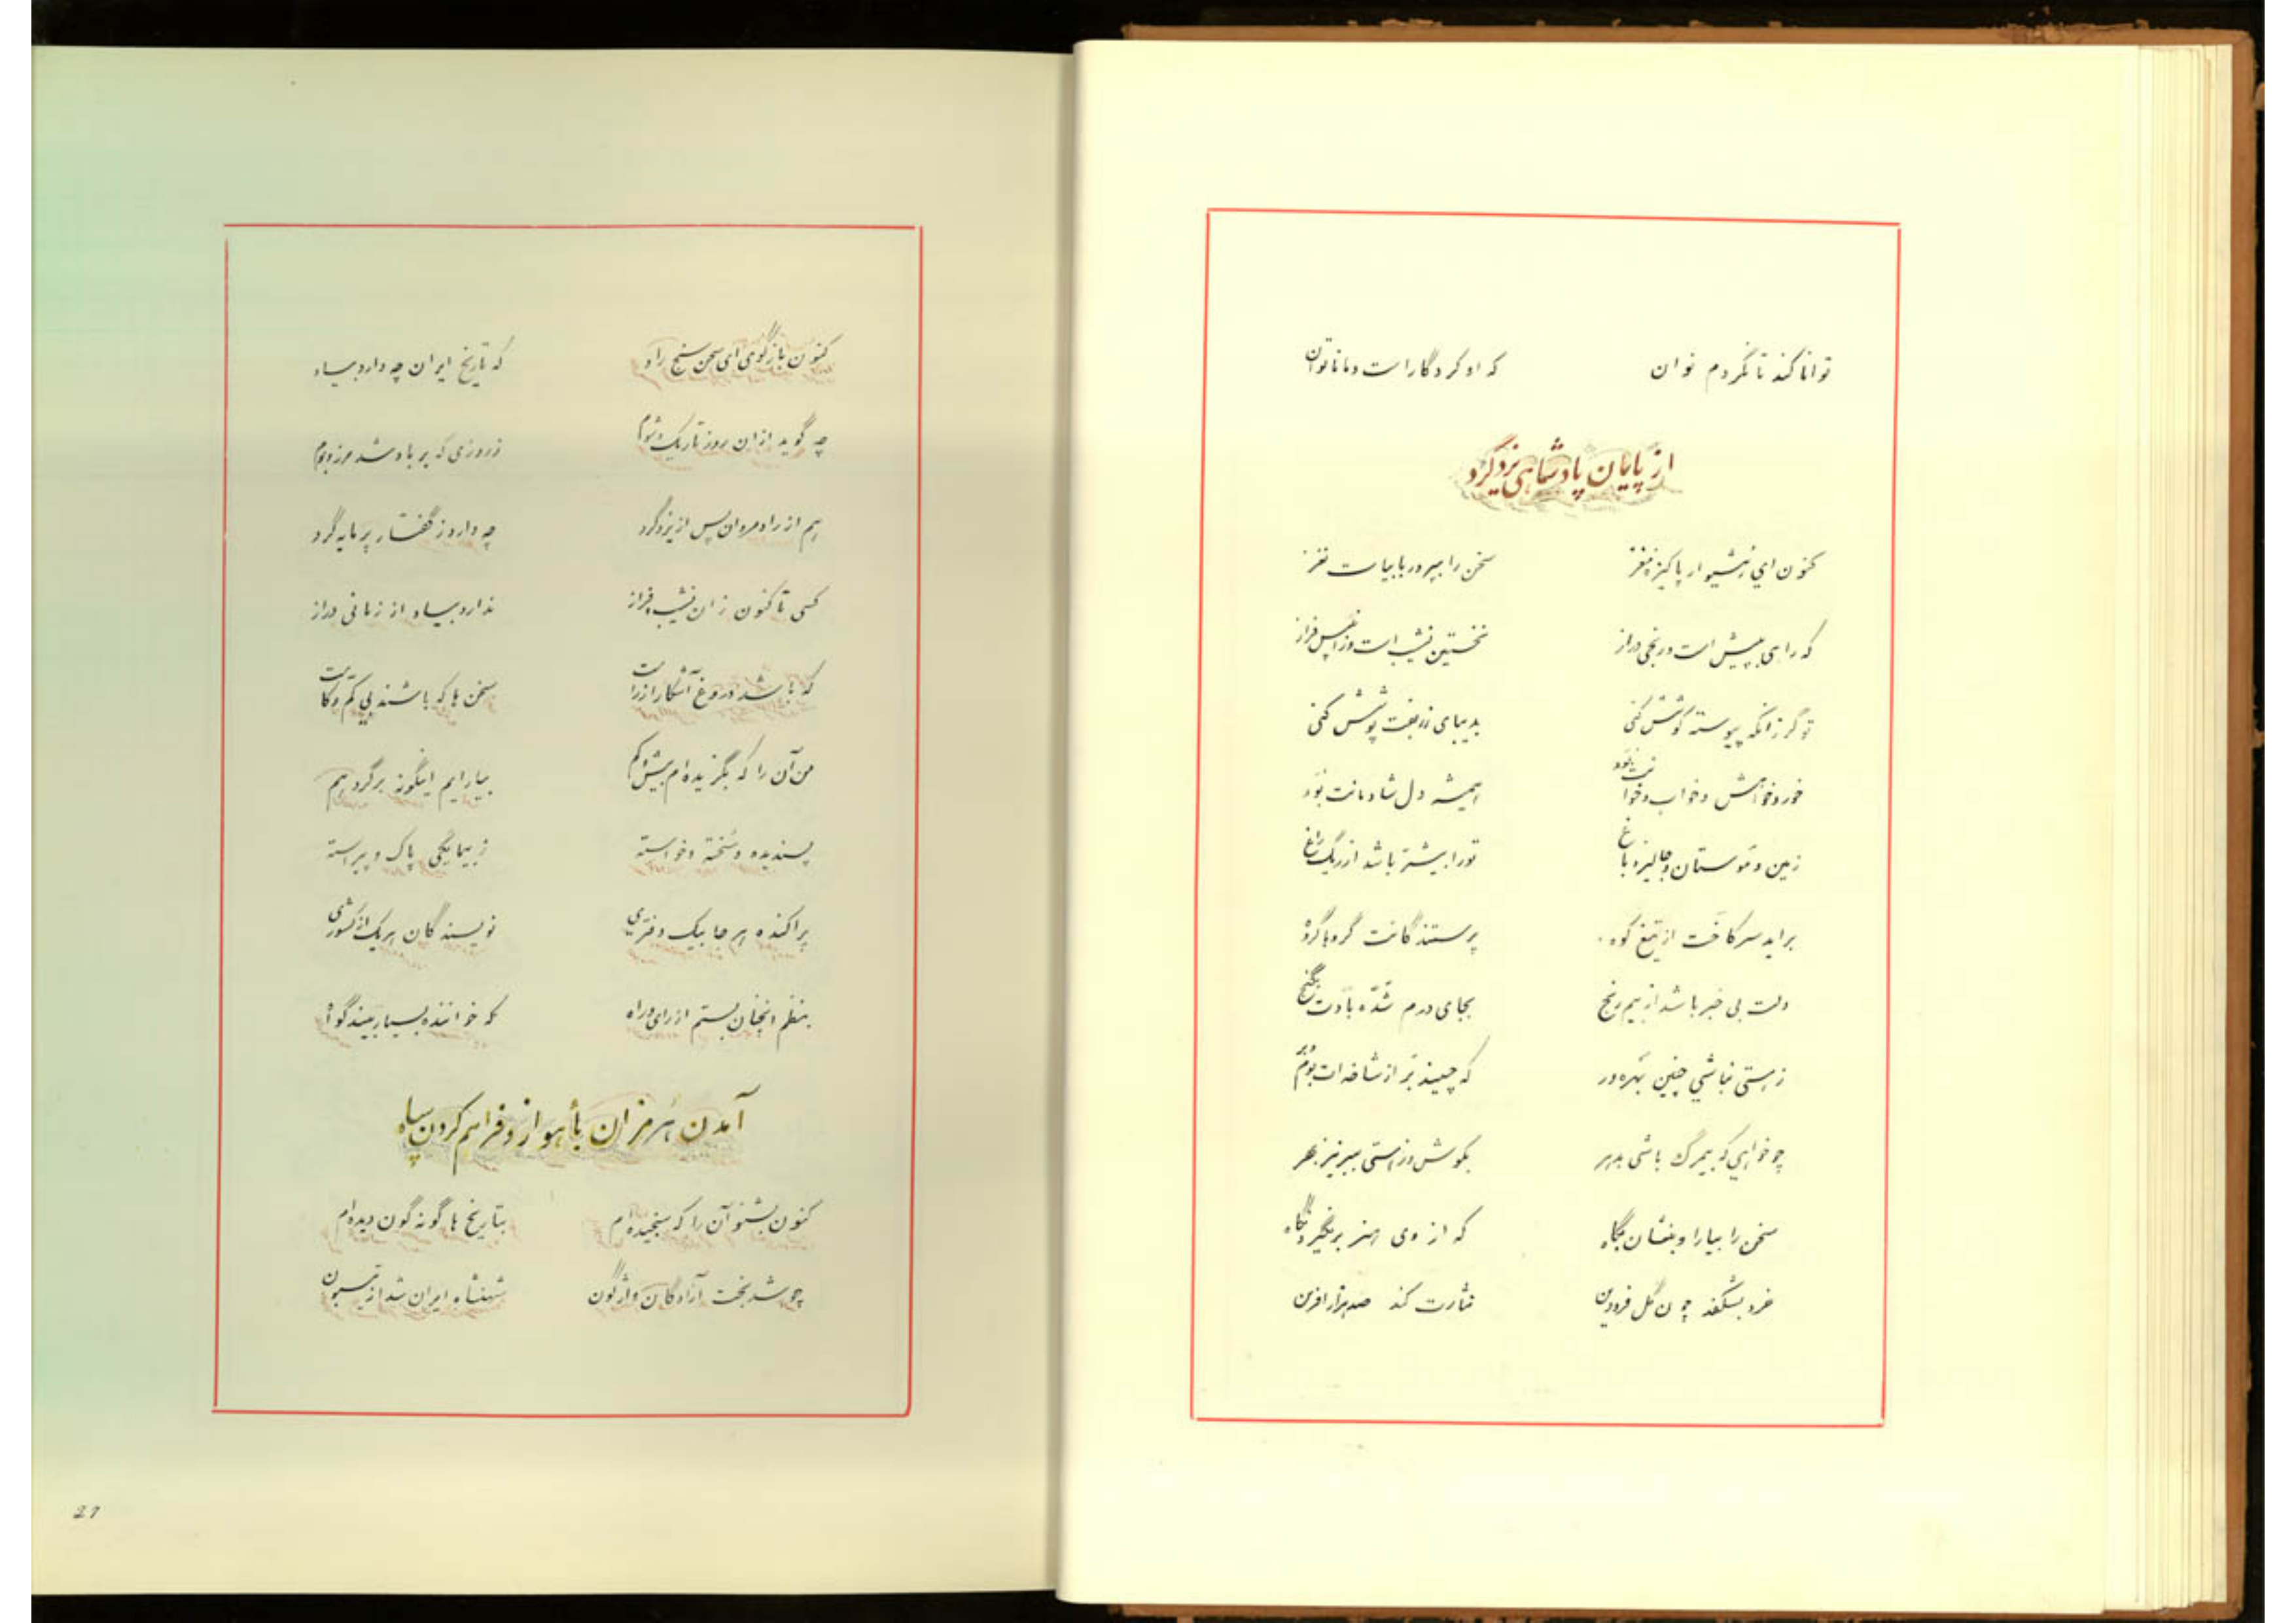 توانا کند تا نگردم نوان که او کردگار است و ما ناتوان
از پایان پادشاهی یزدگرد
کنون ای هشیوار پاکیزه مغز سخن را بپرور بابیات نغز
که راهی بپیش است و رنجی دراز نخستین نشیب است وز آن پس فراز
تو گر زانکه پیوسته کوشش کنی بدیبای زربفت پوشش کنی
خور و خواهش و خواب و خوانت بود همیشه دل شادمانت بود
زمین و موستان و جالیز و باغ تو را بیشتر باشد از ریگ راغ
براید سر کاخت از تیغ کوه پرستندگانت گروها گروه
دلت بی خبر باشد از بیم رنج بجای درم شده بادت بگنج
ز هستی نباشی چنین بهره ور که چینند بر از شاخه ات بوم و بر
چو خواهی که بیمرگ باشی بدهر بکوش و ز هستی ببر نیز بهر
سخن را بیارا و بنشان بگاه که از وی هنر برنگیرد نگاه
خرد بشکفد چون گل فرودین نثارت کند صد هزار افرین
کنون بازگوی ای سخن سنج راد که تاریخ ایران چه دارد بیاد
چه گوید ازان روز تاریک و شوم ز روزی که بر باد شد مرز و بوم
هم از رادمردان پس از یزدگرد چه دارد ز گفتار پرمایه گرد
کسی تا کنون زان نشیب و فراز ندارد بیاد از زمانی دراز
که باشد دروغ آشکارا ز راست سخن ها که باشند بی کم و کاست
من آن را که بگزیده ام بیش و کم بیارایم اینگونه بر گرد هم
پسندیده و سخته و خواسته ز بیمایگی پاک و پیراسته
پراکنده هر جا بیک دفتری نویسندگان هر یک از کشوری
بنظم انچنان بستم از رای و راه که خواننده بسیار بیند گواه
آمدن هرمزان بأهواز و فراهم کردن سپاه
کنون بشنو آن را که سنجیده ام بتاریخ ها گونه گون دیده ام
چو شد بخت آزادگان واژگون شهنشاه ایران شد از تیسبون
27